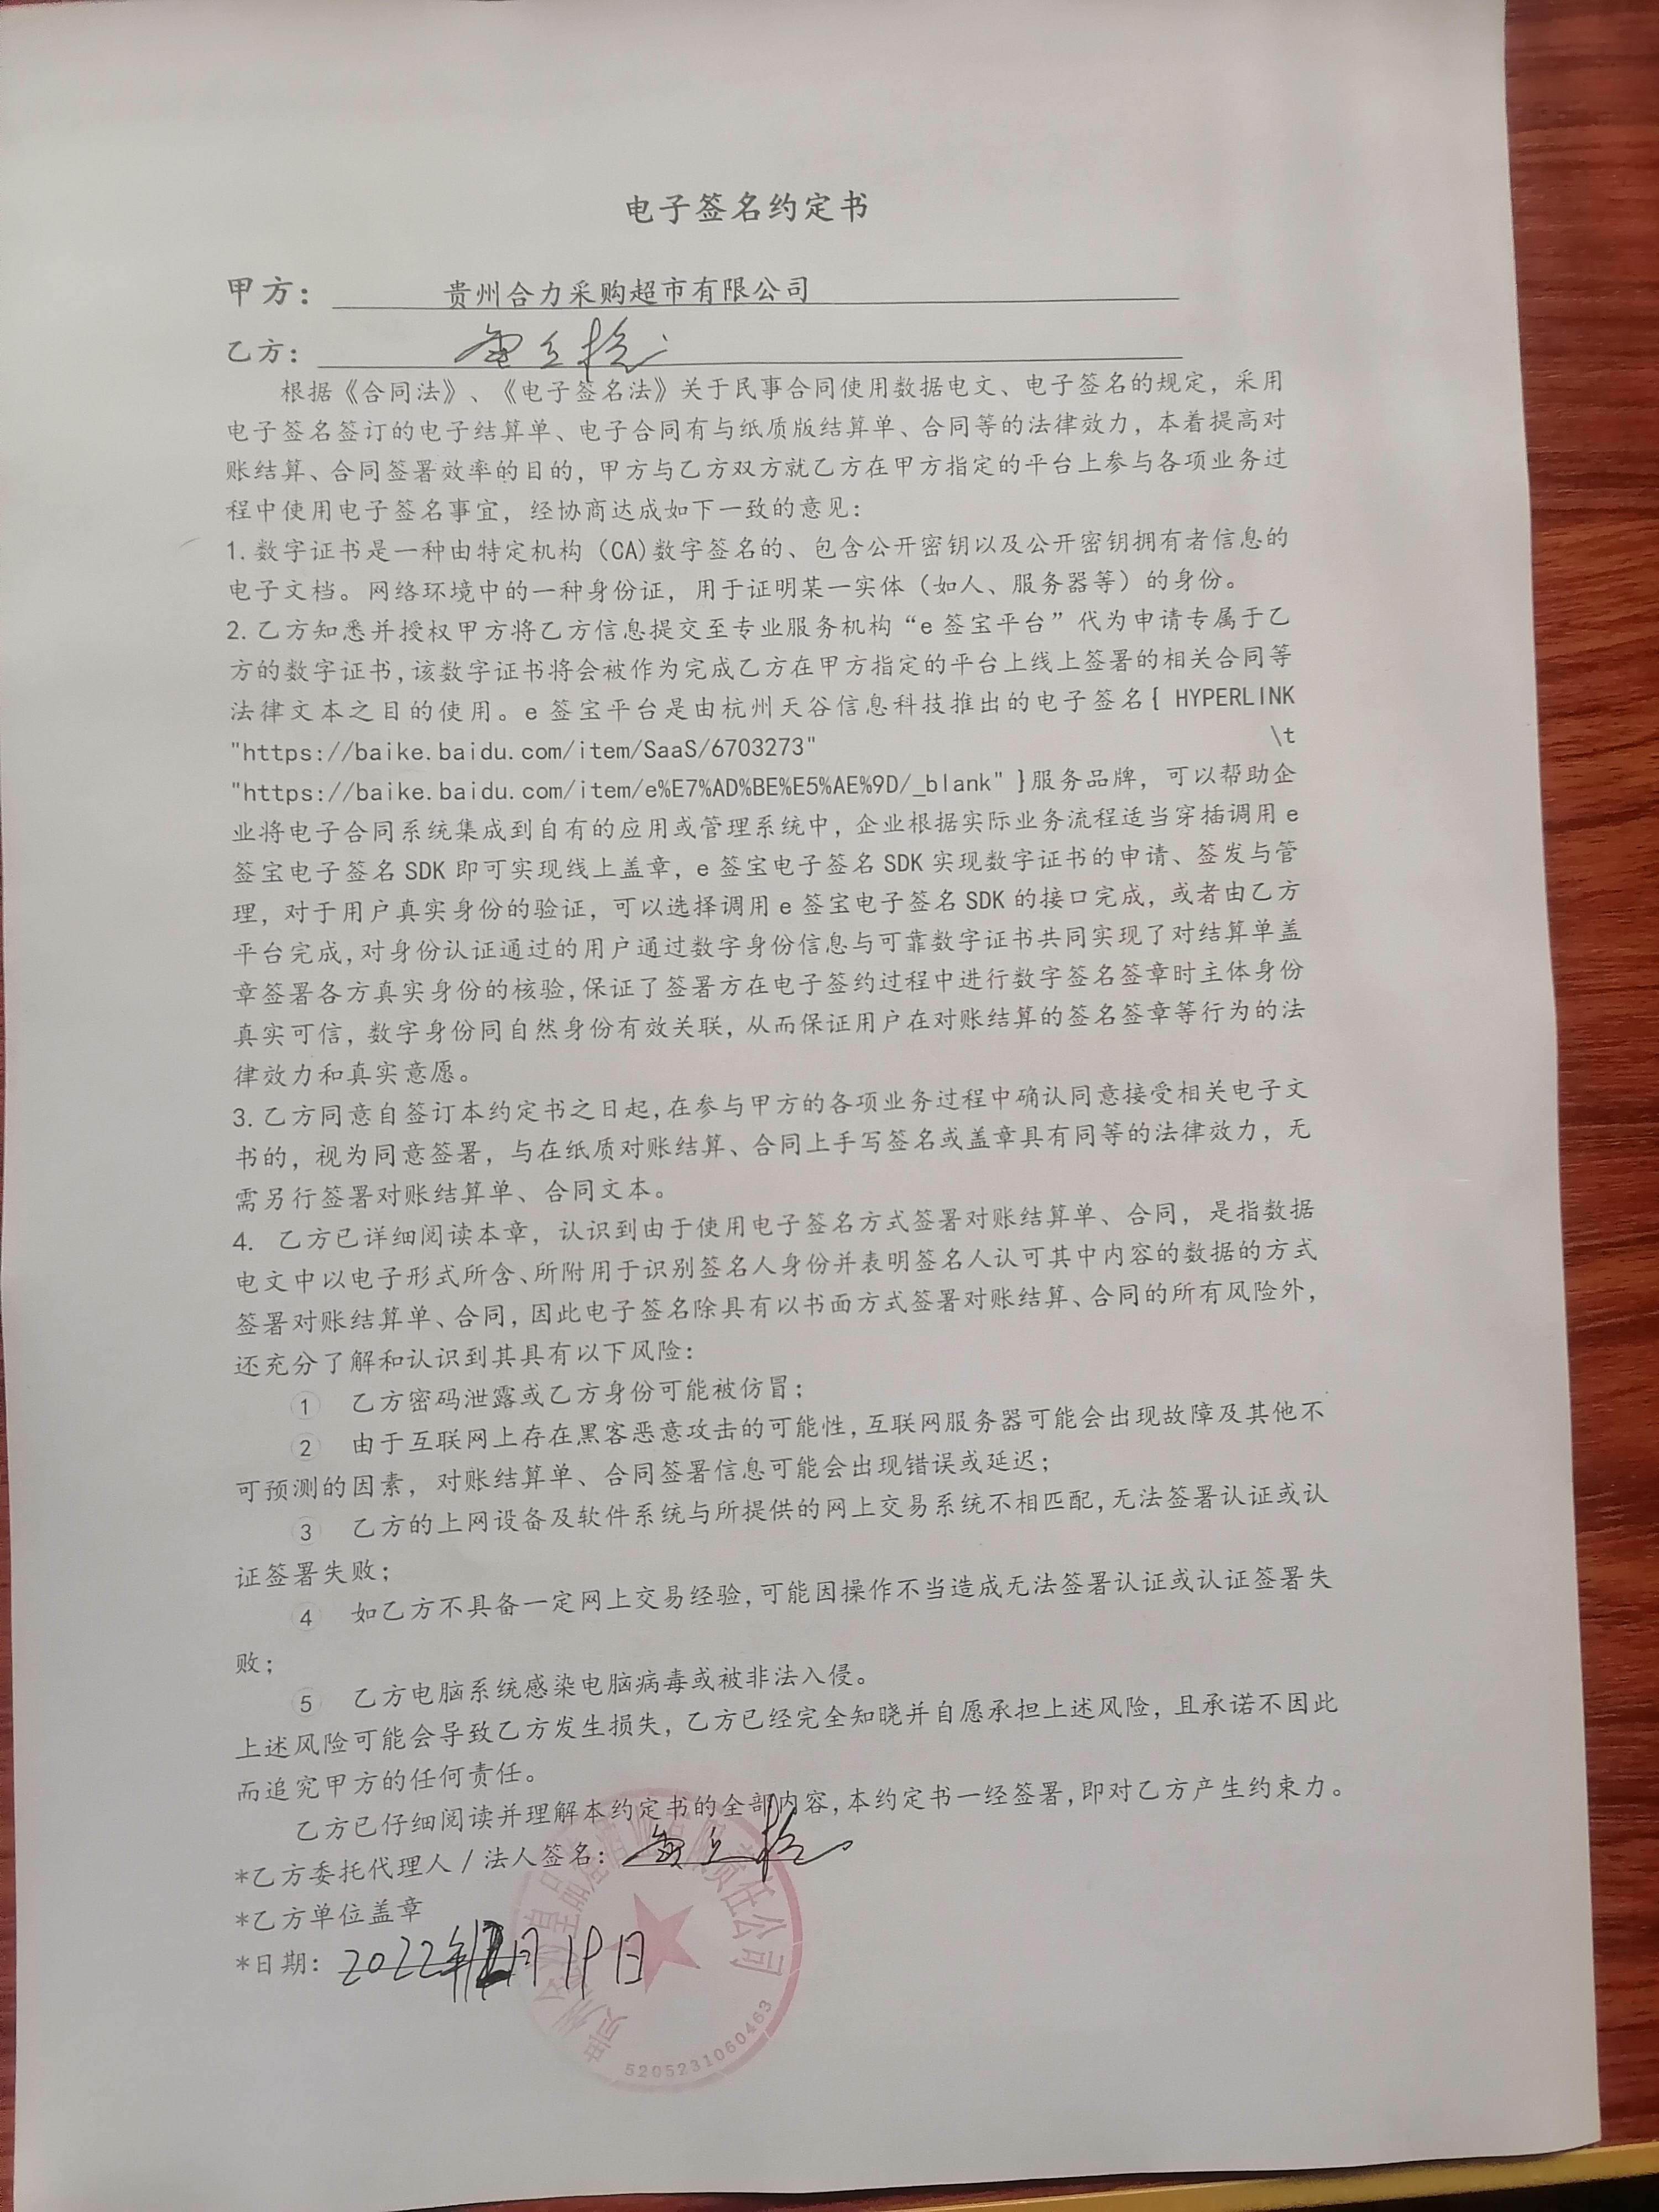 电子签名约定书
甲方： 贵州合力采购超市有限公司
乙方：
根据《合同法》、《电子签名法》关于民事合同使用数据电文、电子签名的规定，采用
电子签名签订的电子结算单、电子合同有与纸质版结算单、合同等的法律效力，本着提高对
账结算、合同签署效率的目的，甲方与乙方双方就乙方在甲方指定的平台上参与各项业务过
程中使用电子签名事宜，经协商达成如下一致的意见：
1.数字证书是一种由特定机构（CA)数字签名的、包含公开密钥以及公开密钥拥有者信息的
电子文档。网络环境中的一种身份证，用于证明某一实体（如人、服务器等）的身份。
2.乙方知悉并授权甲方将乙方信息提交至专业服务机构“e签宝平台”代为申请专属于乙
方的数字证书,该数字证书将会被作为完成乙方在甲方指定的平台上线上签署的相关合同等
法律文本之目的使用。e签宝平台是由杭州天谷信息科技推出的电子签名{ HYPERLINK
"https://baike.baidu.com/item/SaaS/6703273" \t
"https://baike.baidu.com/item/e%E7%AD%BE%E5%AE%9D/_blank" }服务品牌，可以帮助企
业将电子合同系统集成到自有的应用或管理系统中，企业根据实际业务流程适当穿插调用e
签宝电子签名SDK即可实现线上盖章，e签宝电子签名SDK实现数字证书的申请、签发与管
理，对于用户真实身份的验证，可以选择调用e签宝电子签名SDK的接口完成，或者由乙方
平台完成,对身份认证通过的用户通过数字身份信息与可靠数字证书共同实现了对结算单盖
章签署各方真实身份的核验,保证了签署方在电子签约过程中进行数字签名签章时主体身份
真实可信，数字身份同自然身份有效关联，从而保证用户在对账结算的签名签章等行为的法
律效力和真实意愿。
3.乙方同意自签订本约定书之日起,在参与甲方的各项业务过程中确认同意接受相关电子文
书的，视为同意签署，与在纸质对账结算、合同上手写签名或盖章具有同等的法律效力，无
需另行签署对账结算单、合同文本。
4. 乙方已详细阅读本章，认识到由于使用电子签名方式签署对账结算单、合同，是指数据
电文中以电子形式所含、所附用于识别签名人身份并表明签名人认可其中内容的数据的方式
签署对账结算单、合同，因此电子签名除具有以书面方式签署对账结算、合同的所有风险外，
还充分了解和认识到其具有以下风险：
① 乙方密码泄露或乙方身份可能被仿冒；
② 由于互联网上存在黑客恶意攻击的可能性,互联网服务器可能会出现故障及其他不
可预测的因素，对账结算单、合同签署信息可能会出现错误或延迟；
③ 乙方的上网设备及软件系统与所提供的网上交易系统不相匹配,无法签署认证或认
证签署失败；
④ 如乙方不具备一定网上交易经验,可能因操作不当造成无法签署认证或认证签署失
败；
⑤ 乙方电脑系统感染电脑病毒或被非法入侵。
上述风险可能会导致乙方发生损失，乙方已经完全知晓并自愿承担上述风险，且承诺不因此
而追究甲方的任何责任。
乙方已仔细阅读并理解本约定书的全部内容,本约定书一经签署,即对乙方产生约束力。
*乙方委托代理人/法人签名：
*乙方单位盖章
*日期：2022年12月19日
5205231060463